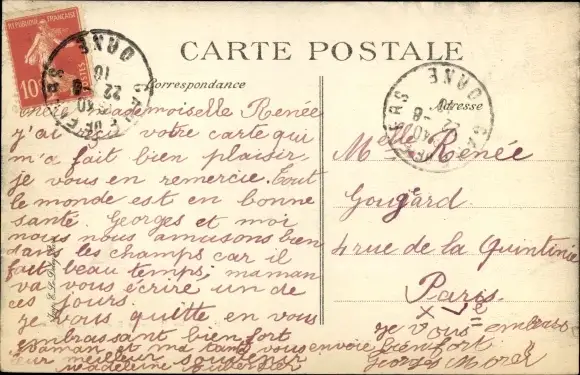 REPUBLIQUE FRANÇAISE
10
POSTES
CARTE POSTALE
Correspondance
Adresse
Mademoiselle Renée
j'ai votre carte qui
m'a fait bien plaisir,
je vous en remercie. Tout
le monde est en bonne
santé. Georges et moi
nous nous amusons bien
dans les champs car il
fait beau temps, maman
va vous écrire un de
ces jours.
je vous quitte en vous
embrassant bien fort
Maman et ma tante vous envoie
leur meilleur souvenir
Madeleine
Melle Renée
Gougeard
4 rue de la Quintinie
Paris
je vous embrasse
bien fort
Georges